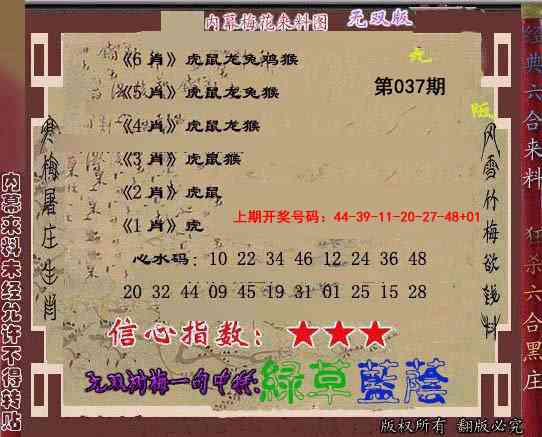 内幕梅花来料图 无双版
《6 肖》虎鼠龙兔鸡猴
《5 肖》虎鼠龙兔猴
《4 肖》虎鼠龙猴
《3 肖》虎鼠猴
《2 肖》虎鼠
《1 肖》虎
第037期
上期开奖号码：44-39-11-20-27-48+01
心水码：10 22 34 46 12 24 36 48
20 32 44 09 45 19 31 01 25 15 28
信心指数：★★★
绿草蓝荫
寒梅屠庄生肖
风雪竹梅欲钱料
内幕来料未经允许不得转贴
经典六合来料 狂杀六合黑庄
版权所有 翻版必究